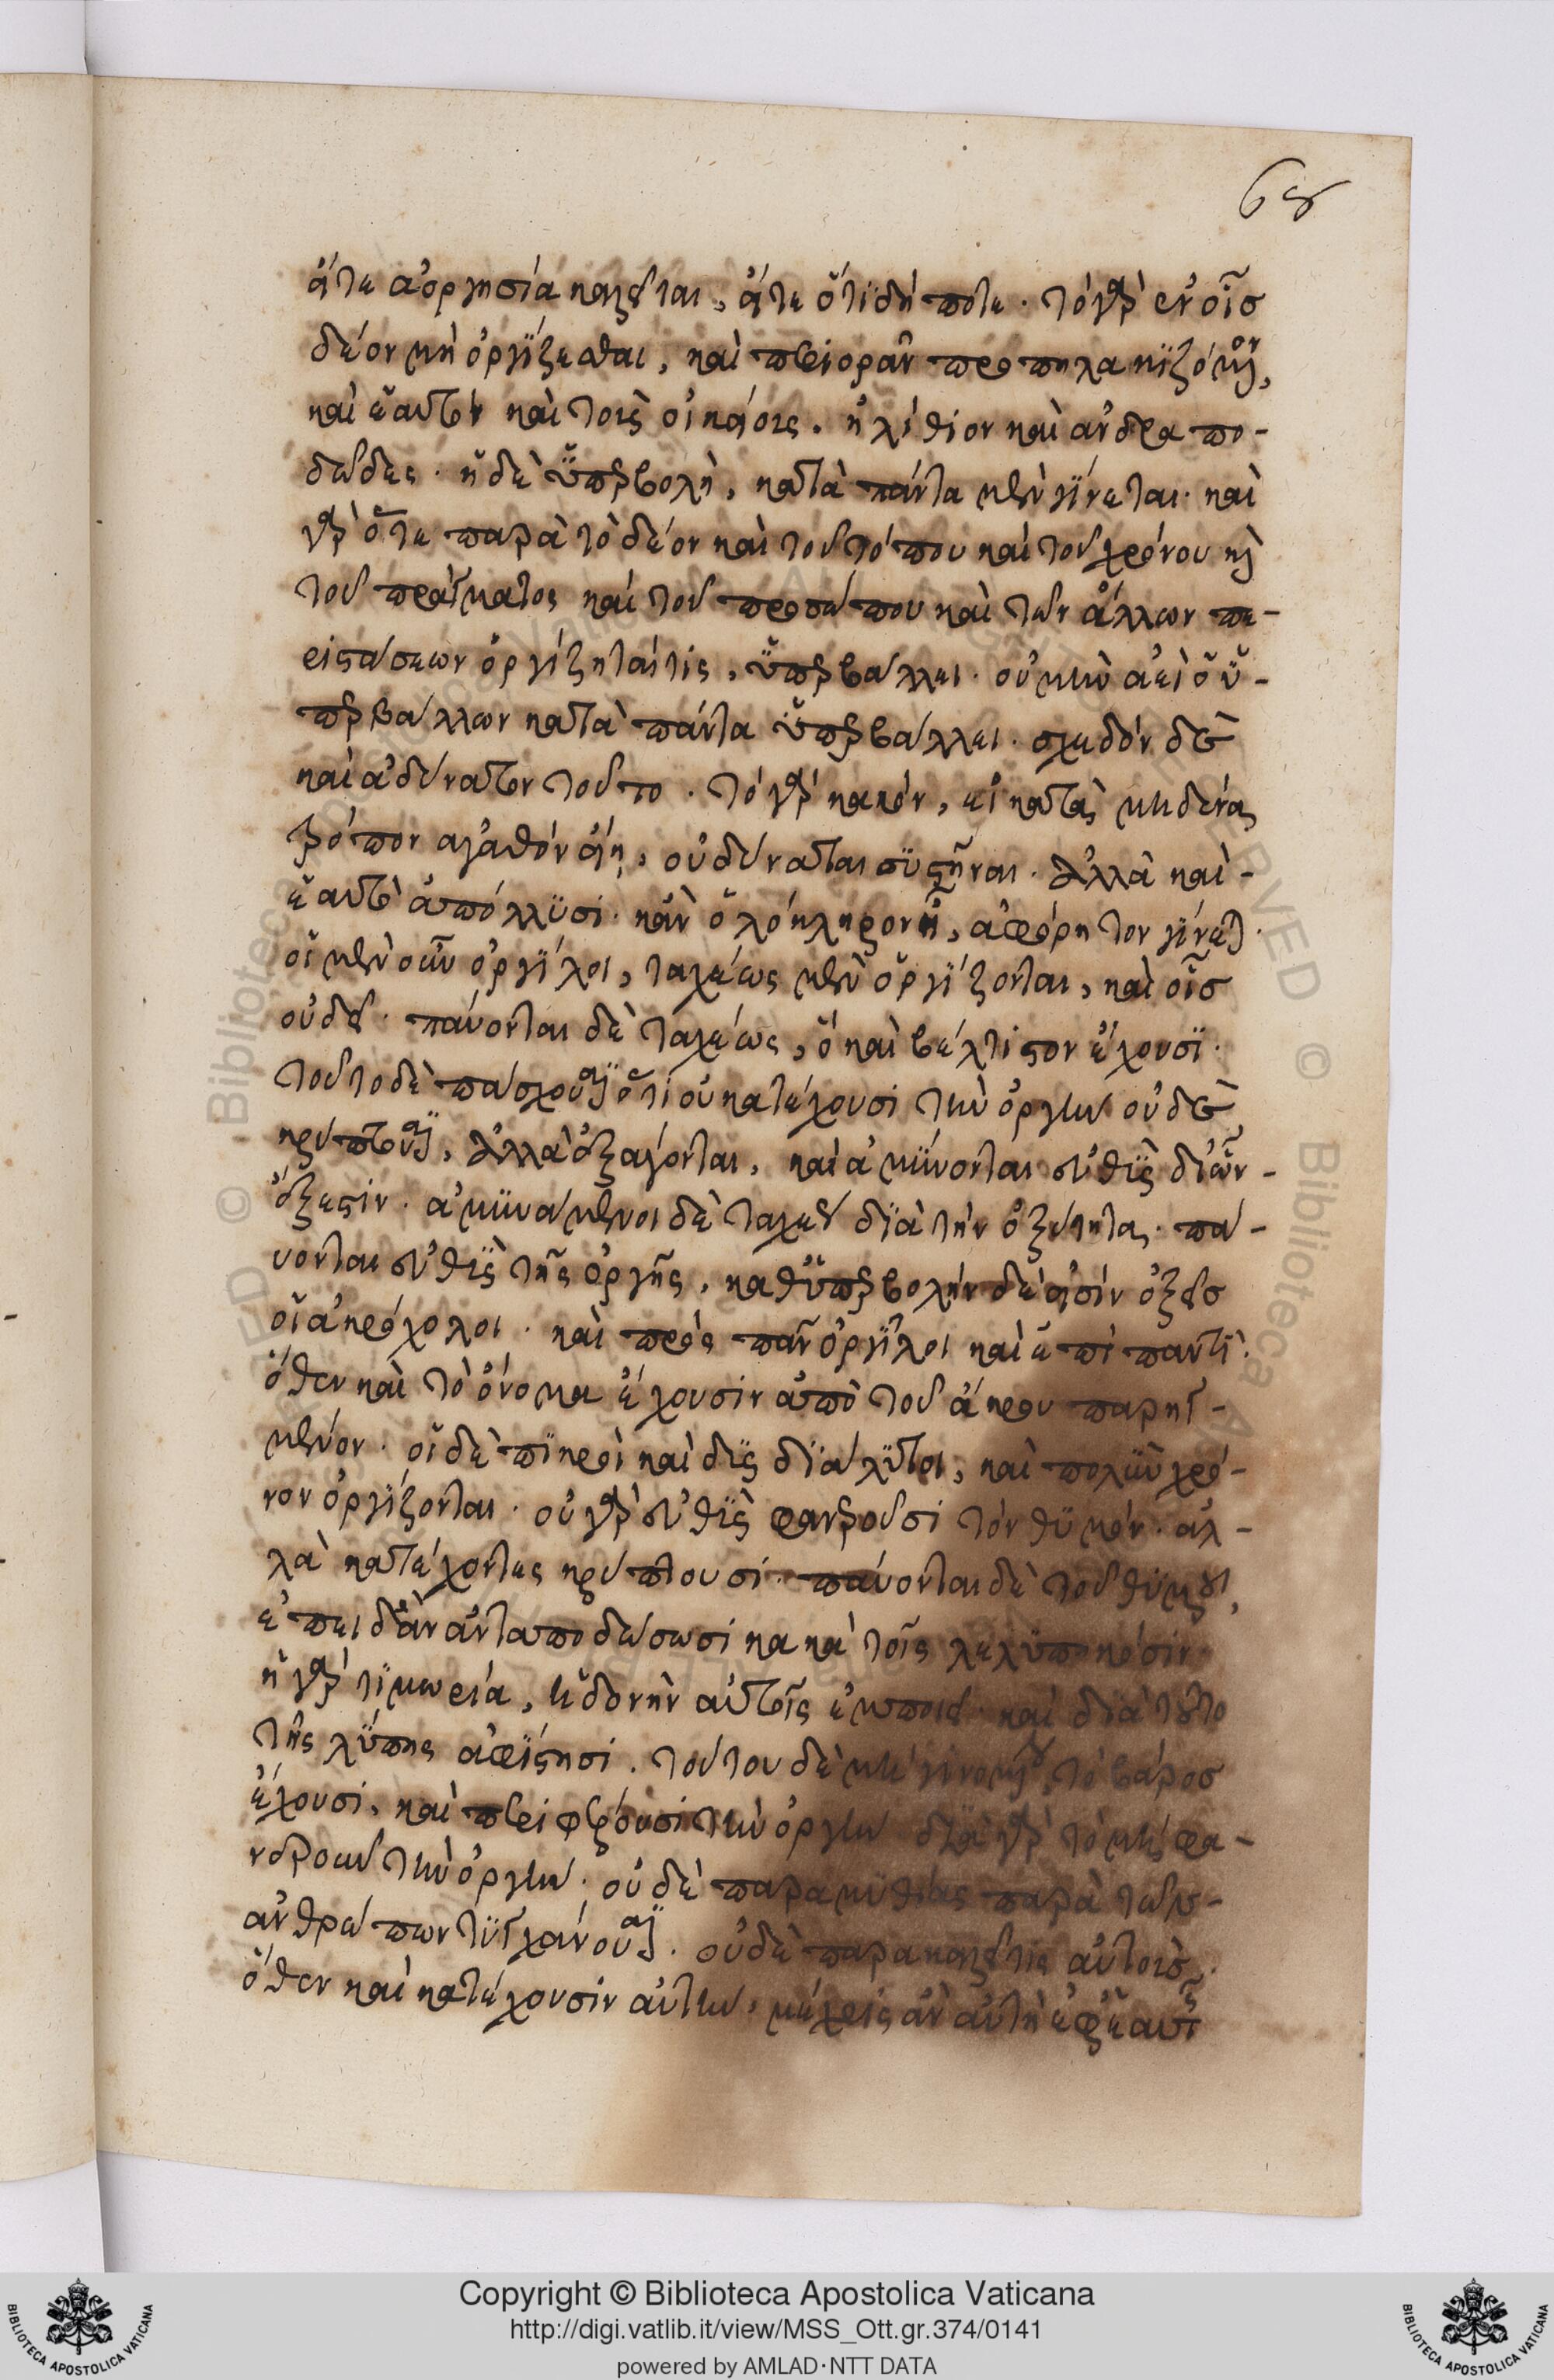 68
εἴτε ἀοργησία καλεῖται, εἴτε ὅτι δήποτε. τὸ γὰρ ἐν οἷς
δέον μὴ ὀργίζεσθαι, καὶ περιορᾶν προπηλακιζόμενον,
καὶ ἑαυτὸν καὶ τοὺς οἰκείους. ἠλίθιον καὶ ἀνδραπο-
δῶδες. ἡ δὲ ὑπερβολὴ, κατὰ πάντα μὲν γίνεται. καὶ
γὰρ ὅτε παρὰ τὸ δέον καὶ τοῦ τόπου καὶ τοῦ χρόνου καὶ
τοῦ πράγματος καὶ τοῦ προσώπου καὶ τῶν ἄλλων πε-
ριστάσεων ὀργίζηταί τις, ὑπερβάλλει. οὐ μὴν ἀεὶ ὁ ὑ-
περβάλλων κατὰ πάντα ὑπερβάλλει. σχεδὸν δὲ
καὶ ἀδύνατον τοῦτο. τὸ γὰρ κακὸν, εἰ κατὰ μηδένα
τρόπον ἀγαθὸν εἴη, οὐ δύναται συστῆναι. ἀλλὰ καὶ
ἑαυτὸ ἀπόλλυσι. κἂν ὁλόκληρον ᾖ, ἀφόρητον γίνεται.
οἱ μὲν οὖν ὀργίλοι, ταχέως μὲν ὀργίζονται, καὶ οἷς
οὐ δεῖ. παύονται δὲ ταχέως, ὃ καὶ βέλτιστον ἔχουσι.
τοῦτο δὲ πάσχουσιν ὅτι οὐ κατέχουσι τὴν ὀργὴν οὐδὲ
κρύπτουσιν, ἀλλὰ ἐξάγονται, καὶ ἀμύνονται εὐθὺς δι' ὧν
ἔξεστιν. ἀμυνάμενοι δὲ ταχεῖ διὰ τὴν ὀξύτητα. πα-
ύονται εὐθὺς τῆς ὀργῆς. καθ' ὑπερβολὴν δέ εἰσιν ὀξεῖς
οἱ ἀκρόχολοι. καὶ πρὸς πᾶν ὀργίλοι καὶ ἐπὶ παντί.
ὅθεν καὶ τὸ ὄνομα ἔχουσιν ἀπὸ τοῦ ἄκρου παρηγ-
μένον. οἱ δὲ πικροὶ καὶ δυσδιάλυτοι, καὶ πολὺν χρό-
νον ὀργίζονται. οὐ γὰρ εὐθὺς φανεροῦσι τὸν θυμόν. ἀλ-
λὰ κατέχοντες κρύπτουσι. παύονται δὲ τοῦ θυμοῦ,
ἐπειδὰν ἀνταποδώσωσι κακὰ τοῖς λελυπηκόσιν.
ἡ γὰρ τιμωρία, ἡδονὴν αὐτοῖς ἐμποιεῖ. καὶ διὰ τοῦτο
τῆς λύπης ἀφίστησι. τούτου δὲ μὴ γινομένου, τὸ βάρος
ἔχουσι, καὶ περιφέρουσι τὴν ὀργήν. διὰ γὰρ τὸ μὴ φα-
νεροῦν τὴν ὀργήν. οὐδὲ παραμυθίας παρὰ τῶν
ἀνθρώπων τυγχάνουσιν. οὐδὲ παρακαλεῖ τις αὐτούς.
ὅθεν καὶ κατέχουσιν αὐτὴν, μέχρις ἂν αὐτὴ ἐφ' ἑαυτῆς
Copyright © Biblioteca Apostolica Vaticana
http://digi.vatlib.it/view/MSS_Ott.gr.374/0141
powered by AMLAD·NTT DATA